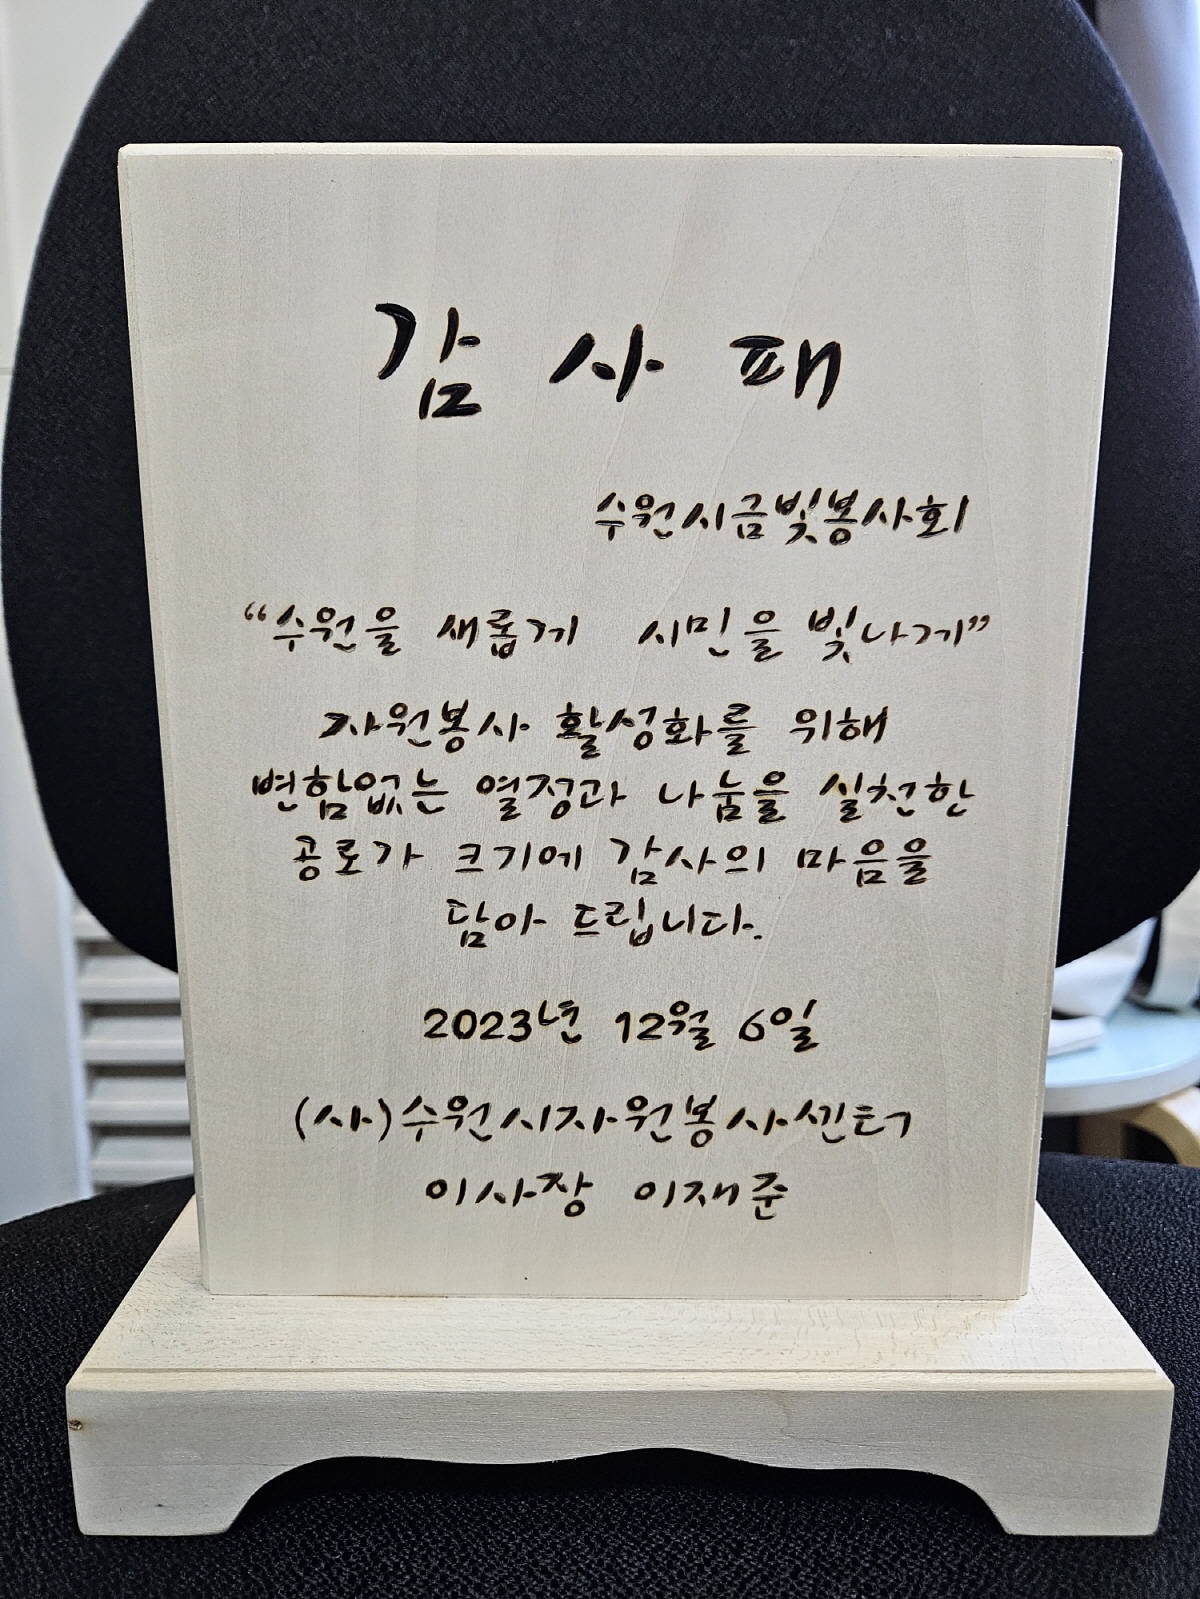 감 사 패
수원시금빛봉사회
“수원을 새롭게 시민을 빛나게”
자원봉사 활성화를 위해
변함없는 열정과 나눔을 실천한
공로가 크기에 감사의 마음을
담아 드립니다.
2023년 12월 6일
(사)수원시자원봉사센터
이사장 이재준